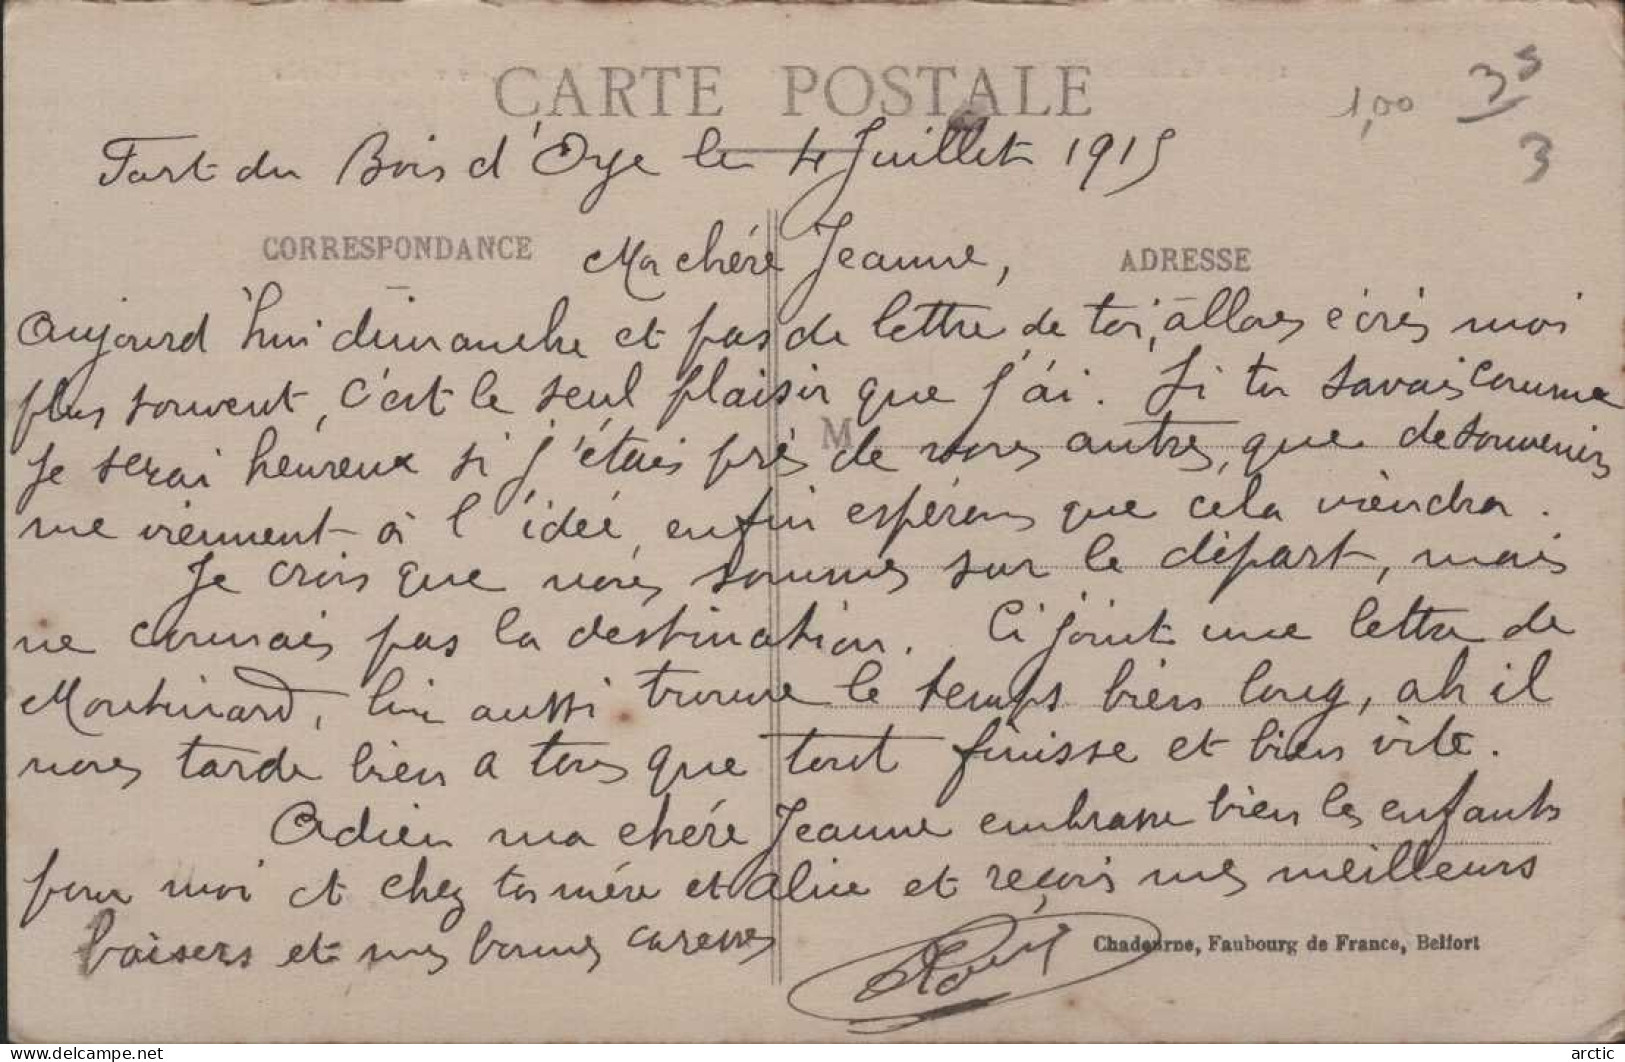 CARTE POSTALE
1,00
3
Fort du Bois d'Oye le 4 Juillet 1915
CORRESPONDANCE
Ma chére Jeanne,
ADRESSE
Aujourd'hui dimanche et pas de lettre de toi, allons écris moi
plus souvent, c'est le seul plaisir que j'ai. Si tu savais comme
je serai heureux si j'étais près de vous autres, que de souvenirs
M
me viennent à l'idée, enfin espérons que cela viendra.
Je crois que nous sommes sur le départ, mais
ne connais pas la destination. Ci joint une lettre de
Montinard, lui aussi trouve le temps bien long, ah il
nous tarde bien a tous que tout finisse et bien vite.
Adieu ma chére Jeanne embrasse bien les enfants
pour moi et chez ta mére et Alice et reçois mes meilleurs
baisers et mes bonnes caresses
Chadourne, Faubourg de France, Belfort
delcampe.net
arctic